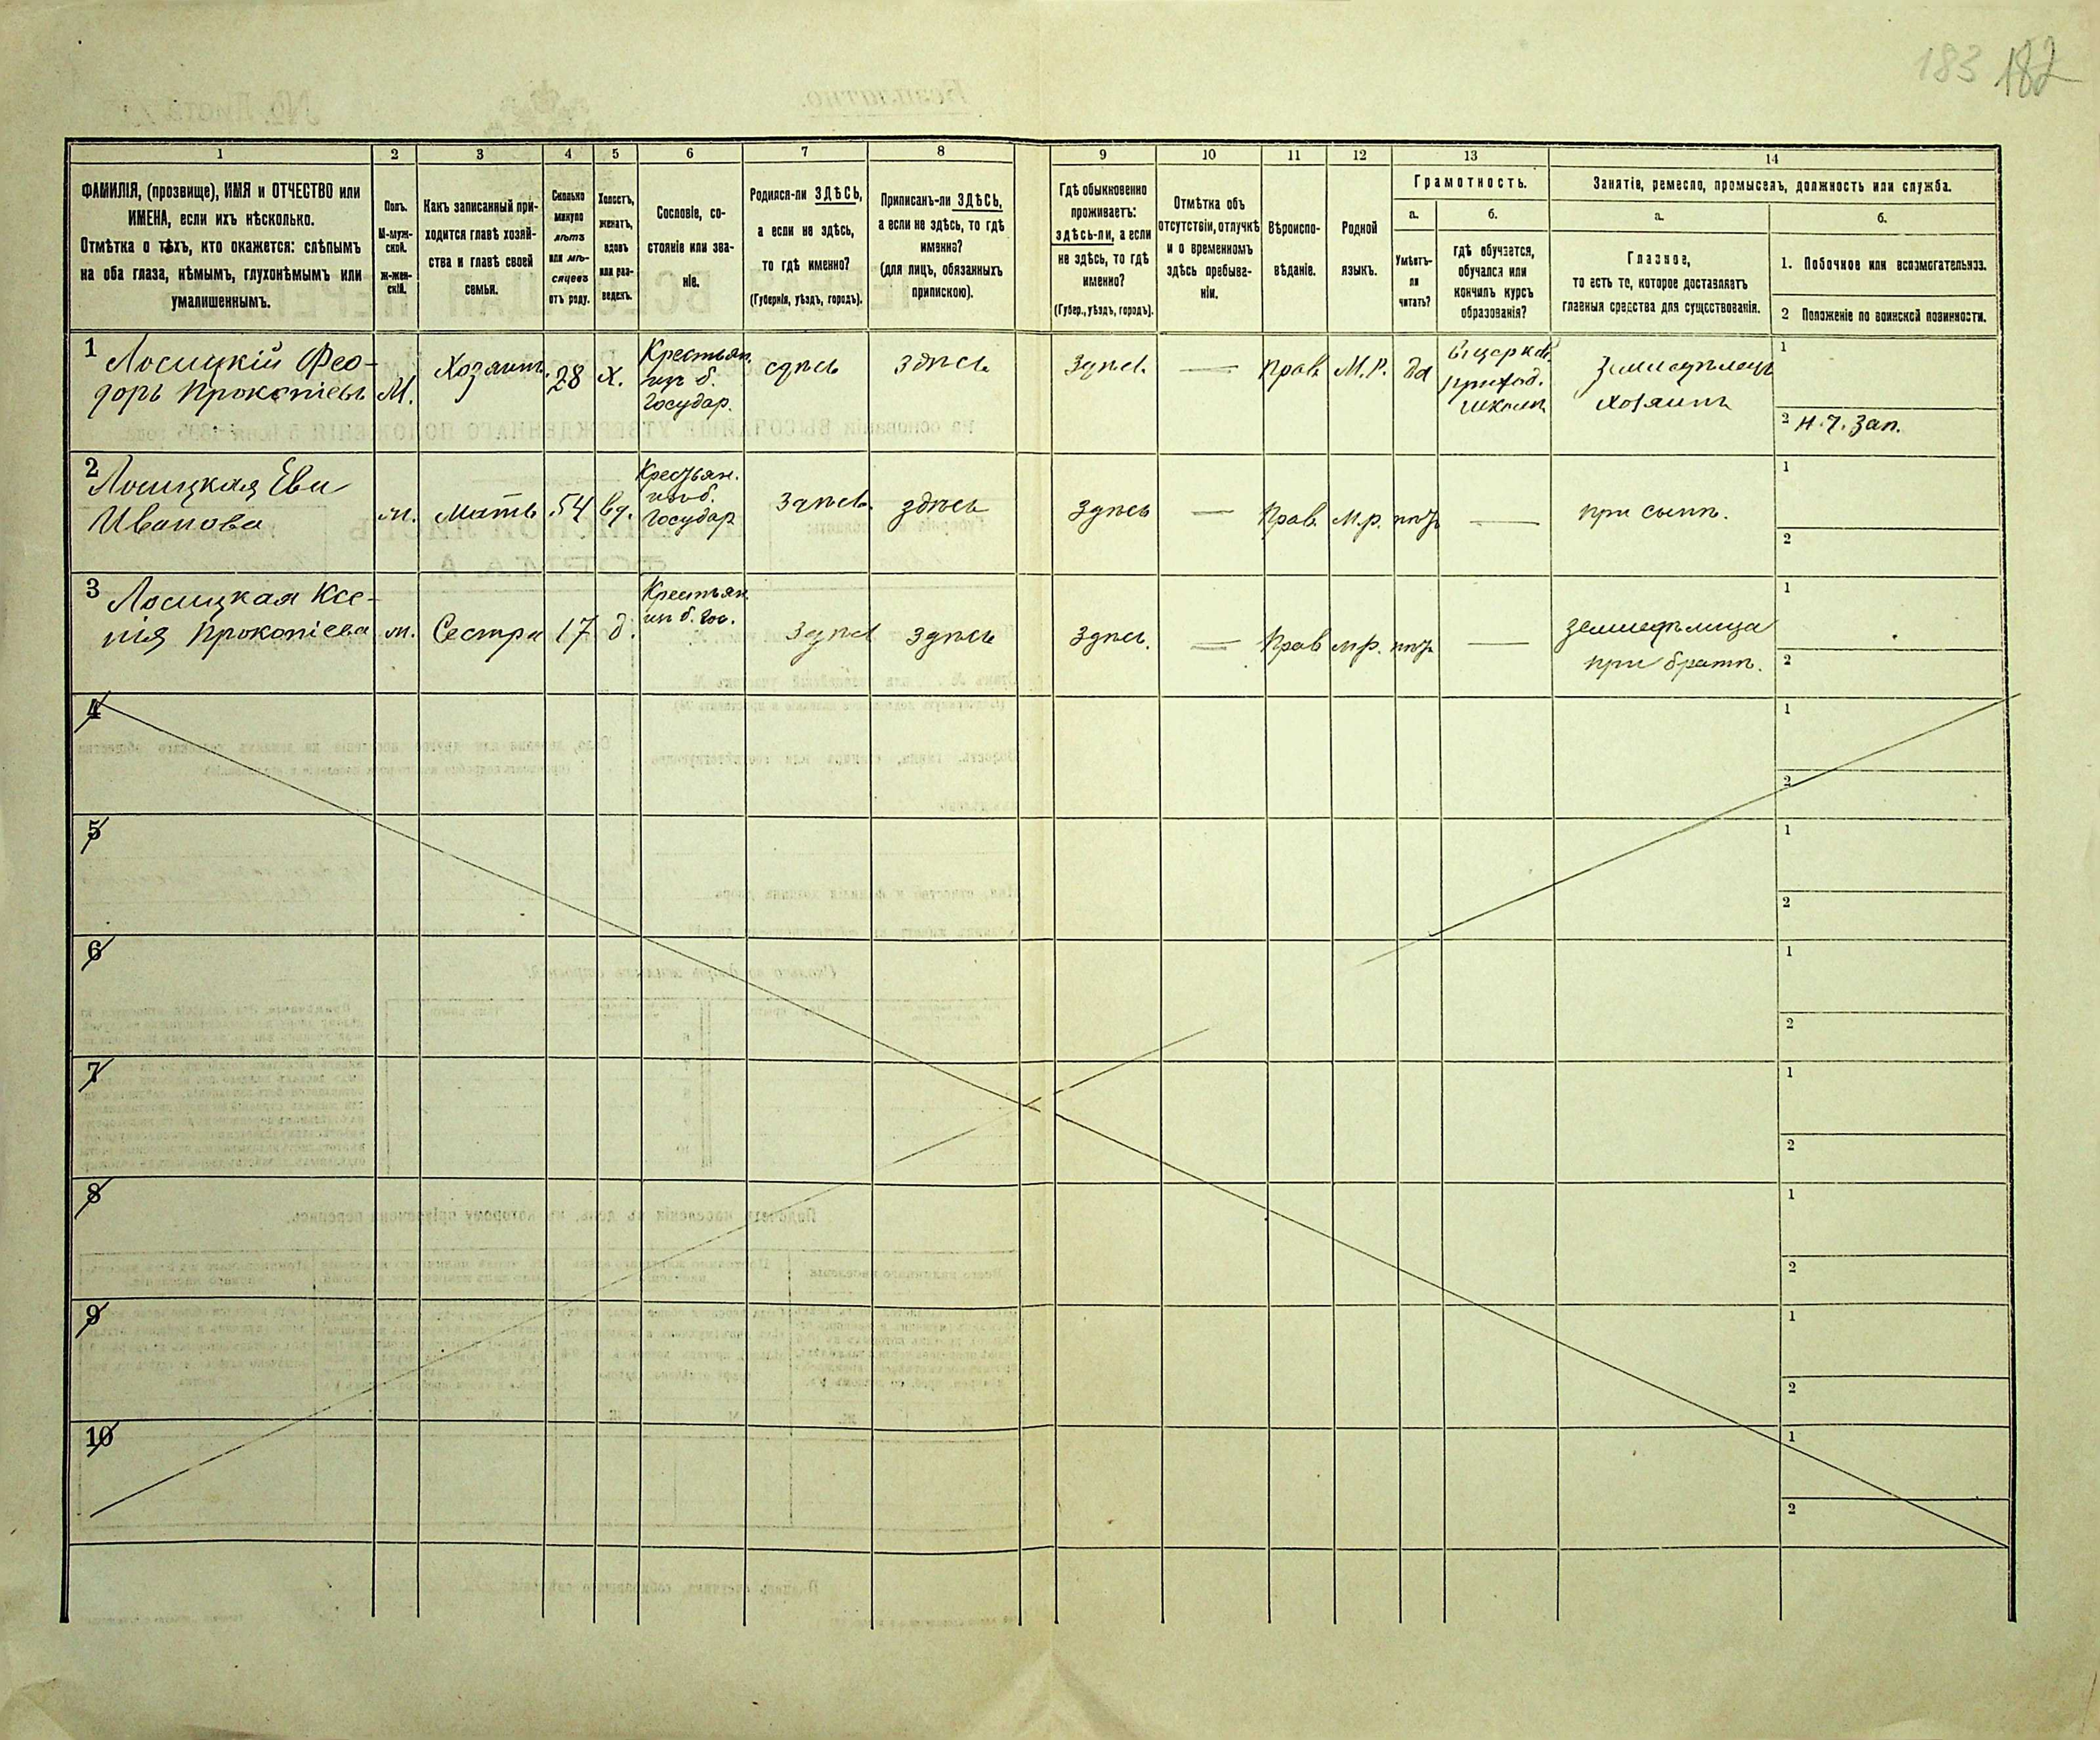 183 182
1 2 3 4 5 6 7 8 9 10 11 12 13 14
ФАМИЛІЯ, (прозвище), ИМЯ и ОТЧЕСТВО или
ИМЕНА, если ихъ нѣсколько.
Отмѣтка о тѣхъ, кто окажется: слѣпымъ
на оба глаза, нѣмымъ, глухонѣмымъ или
умалишеннымъ.
Полъ.
М-муж-
ской.
ж-жен-
скій.
Какъ записанный при-
ходится главѣ хозяй-
ства и главѣ своей
семьи.
Сколько
минуло
лѣтъ
или мѣ-
сяцевъ
отъ роду.
Холостъ,
женатъ,
вдовъ
или раз-
веденъ.
Сословіе, со-
стояніе или зва-
ніе.
Родился-ли ЗДѢСЬ,
а если не здѣсь,
то гдѣ именно?
(Губернія, уѣздъ, городъ).
Приписанъ-ли ЗДѢСЬ,
а если не здѣсь, то гдѣ
именно?
(для лицъ, обязанныхъ
припискою).
Гдѣ обыкновенно
проживаетъ:
здѣсь-ли, а если
не здѣсь, то гдѣ
именно?
(Губер., уѣздъ, городъ).
Отмѣтка объ
отсутствіи, отлучкѣ
и о временномъ
здѣсь пребыва-
ніи.
Вѣроиспо-
вѣданіе.
Родной
языкъ.
Грамотность.
а.
Умѣетъ-
ли
читать?
б.
гдѣ обучается,
обучался или
кончилъ курсъ
образованія?
Занятіе, ремесло, промыселъ, должность или служба.
а.
Главное,
то есть то, которое доставляетъ
главныя средства для существованія.
б.
1. Побочное или вспомогательное.
2 Положеніе по воинской повинности.
1 Лосицкій Фео-
доръ Прокопіевъ М. Хозяинъ 28 х. Крестьян.
изъ б.
Государ. здѣсь здѣсь здѣсь — Прав. М.Р. да
приход.
школѣ
хозяинъ
1
2 Н. Ч. Зап.
2 Лосицкая Ева
Иванова ж. Мать 54 вд. Крестьян.
изъ б.
Государ здѣсь здѣсь здѣсь — Прав. М.р. нѣтъ — при сынѣ.
1
2
3 Лосицкая Ксе-
нія Прокопіева ж. Сестра 17 д. Крестьян
изъ б. Гос. здѣсь здѣсь здѣсь. — Прав М.р. нѣтъ —
при братѣ.
1
2
4 1
2
5 1
2
6 1
2
7 1
2
8 1
2
9 1
2
10 1
2